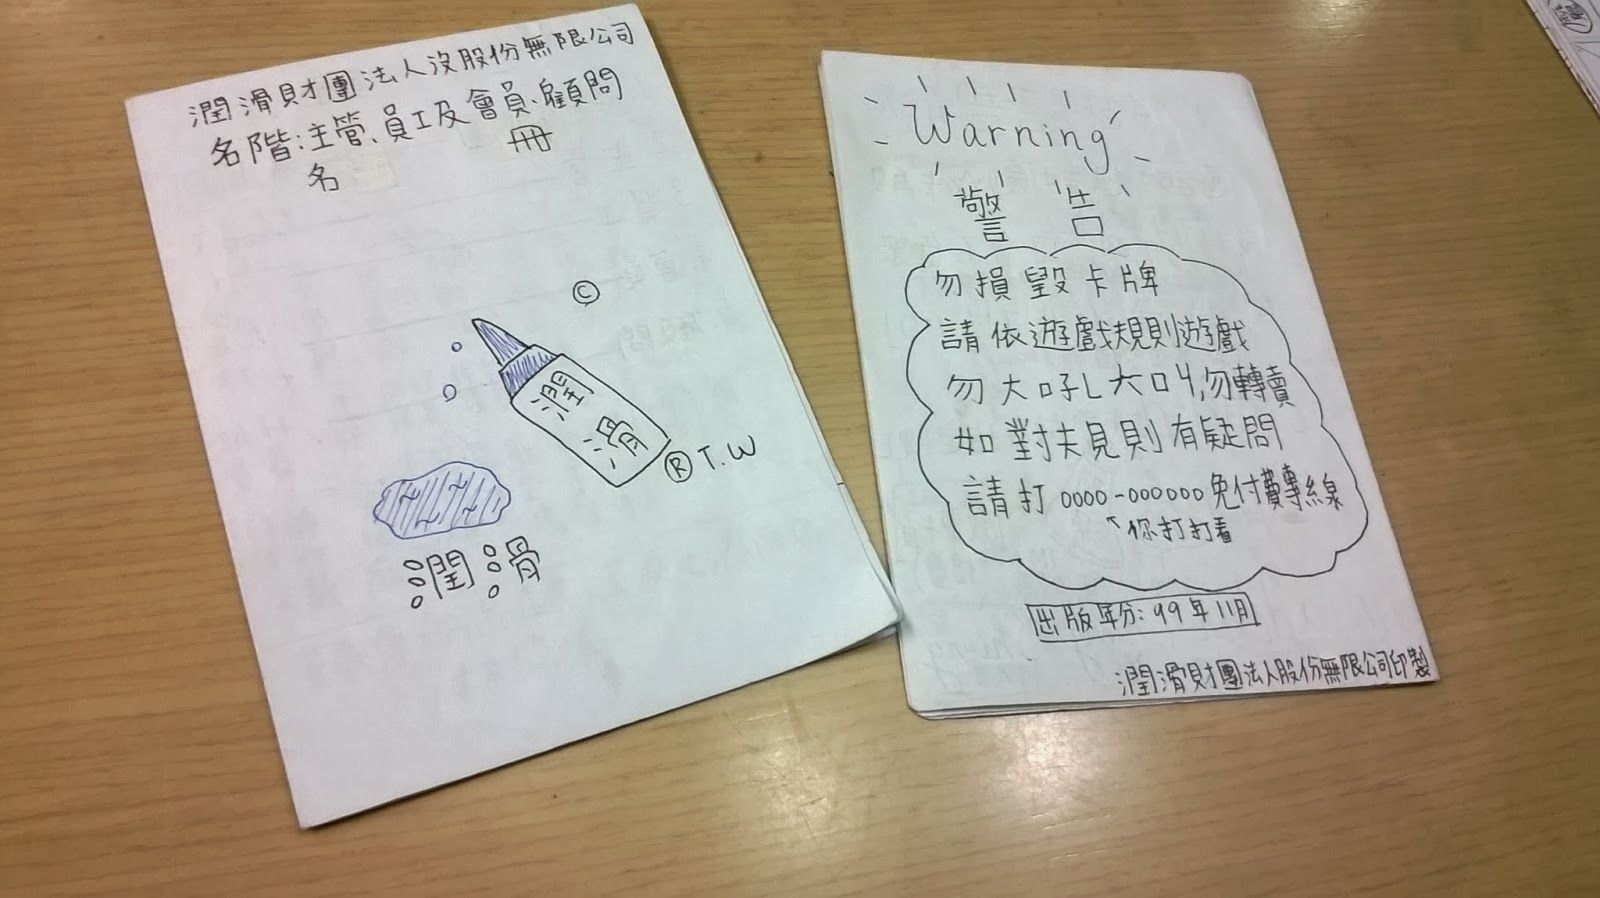 潤滑財團法人沒股份無限公司
名階:主管、員工及會員、顧問
名 冊
©
潤滑
® T.W
潤滑
Warning
警告
勿損毀卡牌
請依遊戲規則遊戲
勿大吼大叫,勿轉賣
如對規則有疑問
請打0000-000000免付費專線
你打打看
出版年份:99年11月
潤滑財團法人股份無限公司印製